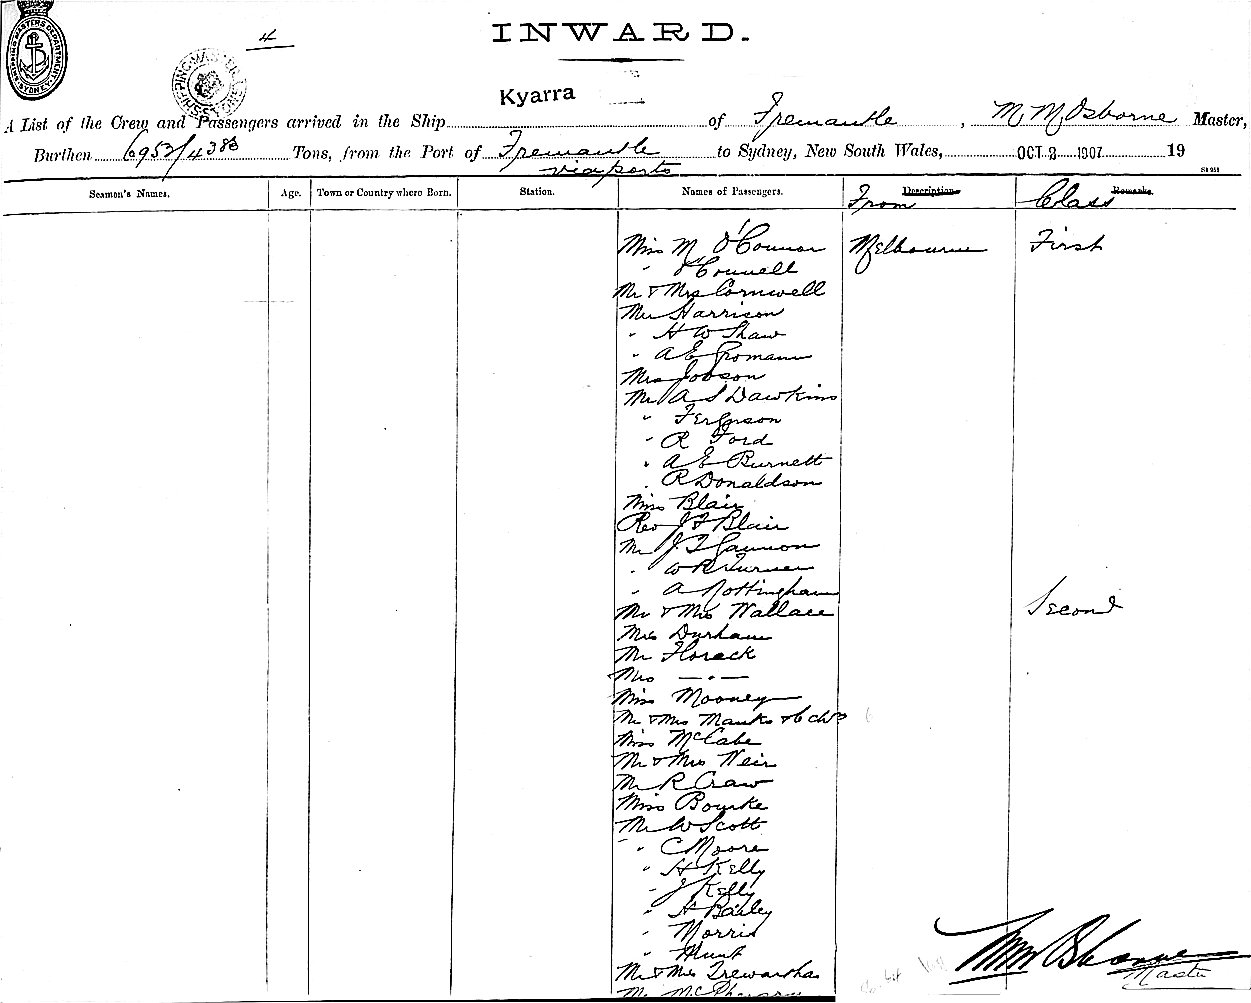 4
INWARD.
SHIPPING MASTER SYDNEY
SHIPPING MASTERS DEPARTMENT SYDNEY
Kyarra
A List of the Crew and Passengers arrived in the Ship of Fremantle, M. M. Osborne Master,
Burthen 6953/4383 Tons, from the Port of Fremantle to Sydney, New South Wales, OCT. 2 1907 19
via ports
Seamen's Names. Age. Town or Country where Born. Station. Names of Passengers. Description. Remarks.
From Class
Miss M O'Connor Melbourne First
" O'Connell
Mr & Mrs Cornwell
Mr Harrison
" H W Shaw
" A E Gromann
Mrs Jobson
Mr A S Dawkins
" Ferguson
" R Ford
" A E Burnett
" R Donaldson
Miss Blair
Rev J F Blair
Mr J T Gannon
" W R Turner
" A Nottingham
Mr & Mrs Wallace Second
Mrs Durham
Mr Horack
Mrs — " —
Miss Mooney
Mr & Mrs Manks & 6 chd
Miss McCabe
Mr & Mrs Weir
Mr R Craw
Miss Bourke
Mr W Scott
" C Moore
" H Kelly
" J Kelly
" H Bailey
" Morris
" Hunt
Mr & Mrs Trewartha
Mr McPherson
M M Osborne
Master